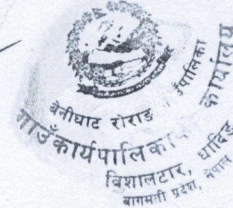 बेनीघाट रोराङ
गाउँकार्यपालिका कार्यालय
बिशालटार, धादिङ
बागमती प्रदेश, नेपाल